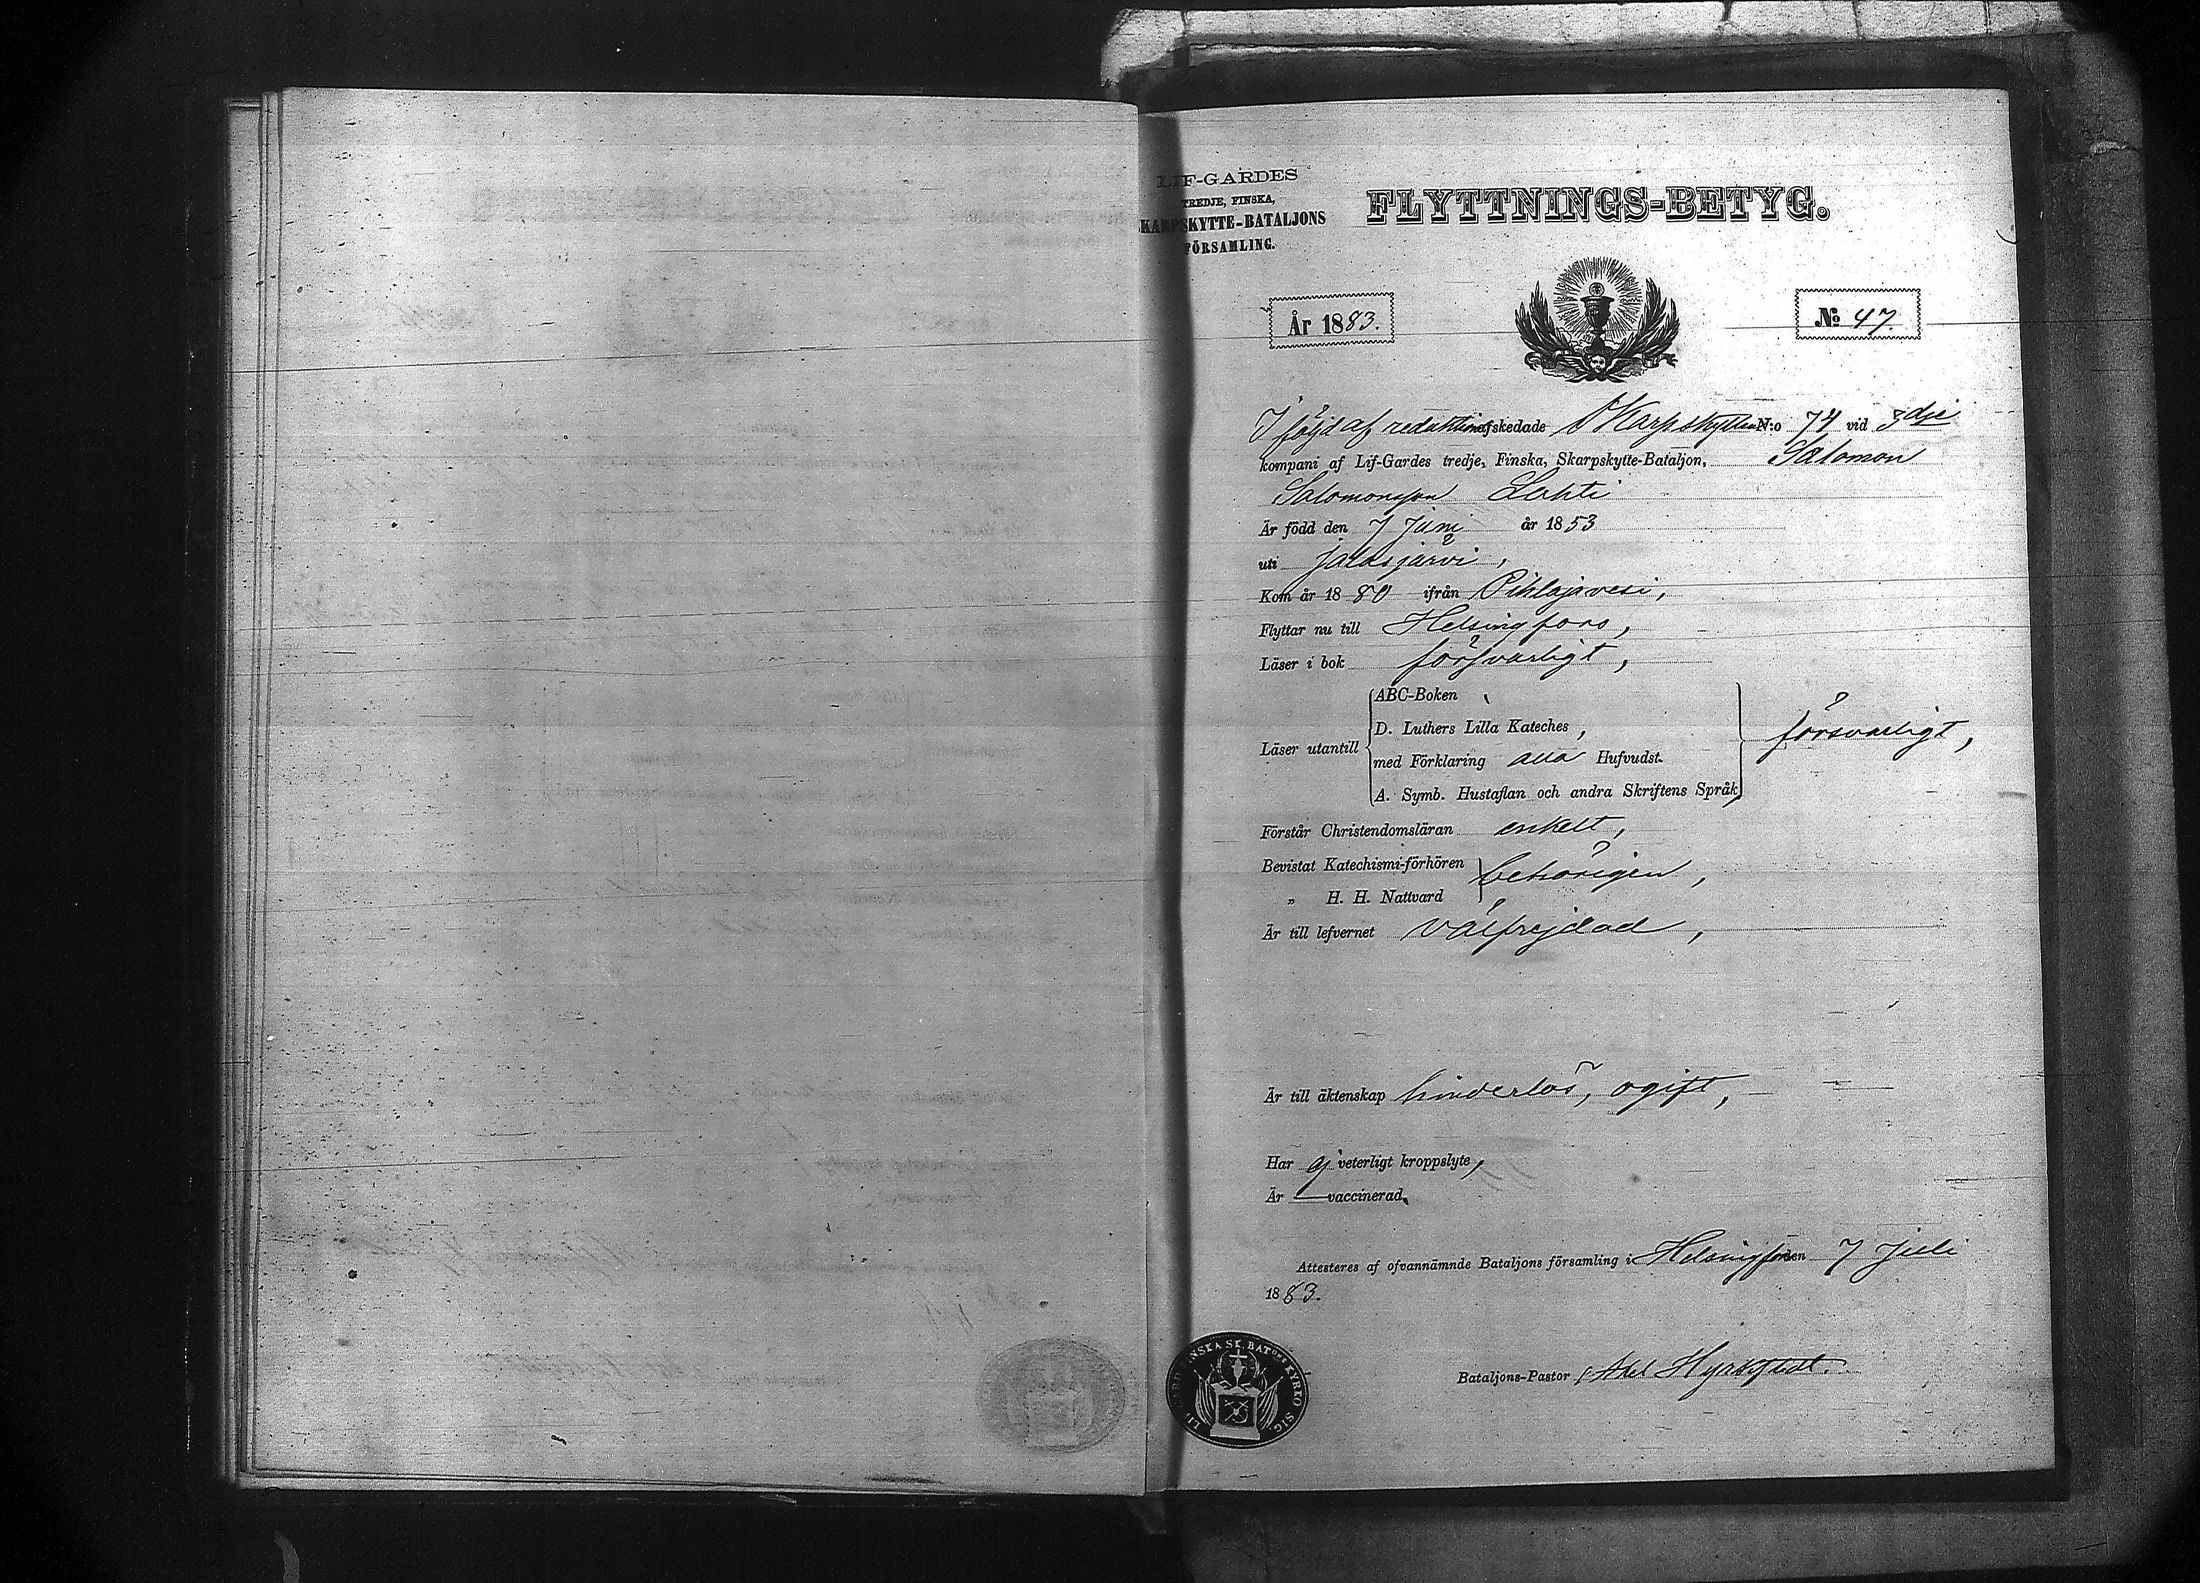 LIF-GARDES
TREDJE, FINSKA,
SKARPSKYTTE-BATALJONS
FÖRSAMLING.
FLYTTNINGS-BETYG.
År 1883.
№ 47.
I följd af reduktion afskedade Skarpskytten N:o 74 vid 3dje
kompani af Lif-Gardes tredje, Finska, Skarpskytte-Bataljon, Salomon
Salomonsson Lahti
Är född den 7 Juni år 1853
uti Jalasjärvi,
Kom år 1880 ifrån Pihlajavesi,
Flyttar nu till Helsingfors,
Läser i bok försvarligt,
Läser utantill
ABC-Boken
D. Luthers Lilla Kateches,
med Förklaring alla Hufvudst.
A. Symb. Hustaflan och andra Skriftens Språk,
försvarligt,
Förstår Christendomsläran enkelt,
Bevistat Katechismi-förhören
„ H. H. Nattvard
behörigen,
Är till lefvernet välfrejdad,
Är till äktenskap hinderlös, ogift,
Har ej veterligt kroppslyte,
Är — vaccinerad.
Attesteres af ofvannämnde Bataljons församling i Helsingfors den 7 Juli
1883.
Bataljons-Pastor Axel Hyrkstedt.
FINSKA SK. BAT:ONS KYRKO SIG.